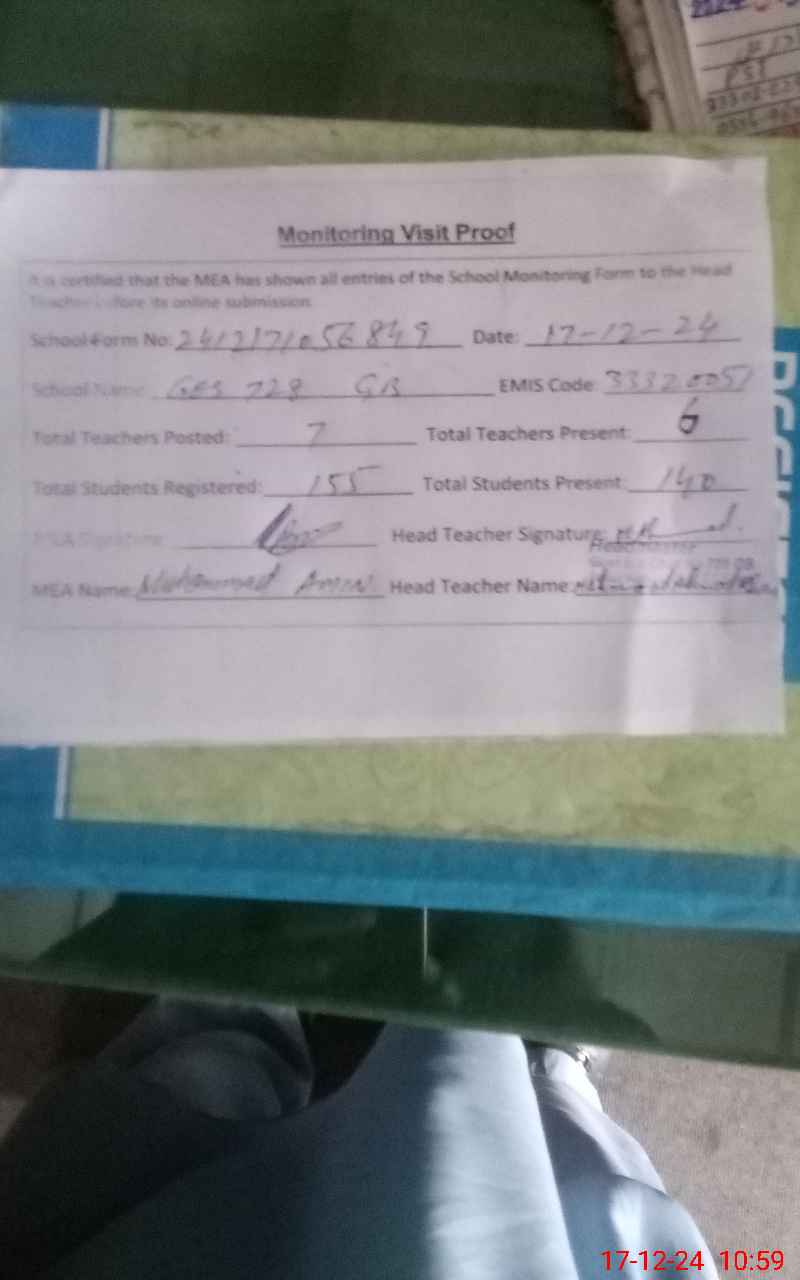 2024
PST
Monitoring Visit Proof
It is certified that the MEA has shown all entries of the School Monitoring Form to the Head
Teacher before its online submission
School Form No: 2412171056849 Date: 17-12-24
School Name: GES 728 GB EMIS Code: 33320051
Total Teachers Posted: 7 Total Teachers Present: 6
Total Students Registered: 155 Total Students Present: 140
MEA Signature Head Teacher Signature:
Headmaster
MEA Name: Muhammad Amin Head Teacher Name:
17-12-24 10:59